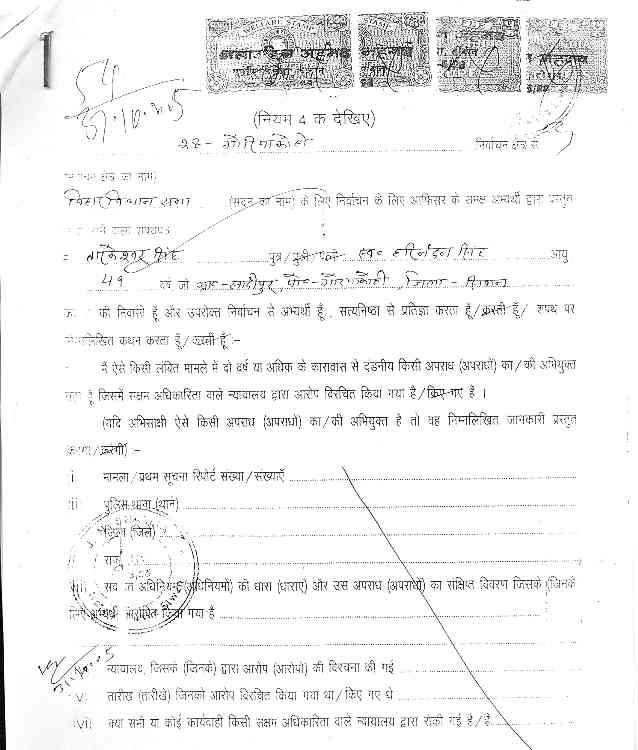 1
WELFARE STAMP STAMP
31.10.2005
(नियम 4 क देखिए)
28- गोरेयाकोठी निर्वाचन क्षेत्र से
क्षेत्र का नाम)
बिहार विधान सभा (सदन का नाम) के लिए निर्वाचन के लिए आफिसर के समक्ष अभ्यर्थी द्वारा प्रस्तुत
वाला शपथपत्र
तारकेश्वर सिंह पुत्र/पुत्री/पत्नी स्व० हरिनंदन सिंह आयु
49 वर्ष जो ग्राम- सादीपुर, पो०- गोरेयाकोठी, जिला- सिवान
की निवासी हूँ और उपरोक्त निर्वाचन से अभ्यर्थी हूँ, सत्यनिष्ठा से प्रतिज्ञा करता हूँ/करती हूँ/ शपथ पर
निम्नलिखित कथन करता हूँ/करती हूँ:-
मैं ऐसे किसी लंबित मामले में दो वर्ष या अधिक के कारावास से दंडनीय किसी अपराध (अपराधों) का/की अभियुक्त
हूँ जिसमें सक्षम अधिकारिता वाले न्यायालय द्वारा आरोप विरचित किया गया है/किए गए हैं ।
(यदि अभिसाक्षी ऐसे किसी अपराध (अपराधों) का/की अभियुक्त है तो वह निम्नलिखित जानकारी प्रस्तुत
करेगा/करेगी) :-
i. मामला/प्रथम सूचना रिपोर्ट संख्या/संख्याएँ
ii पुलिस थाना (थाने)
जिला (जिले)
राज्य
अधिनियम (अधिनियमों) की धारा (धाराएं) और उस अपराध (अपराधों) का संक्षिप्त विवरण जिसके (जिनके
लिए अभ्यर्थी आरोपित किया गया है
न्यायालय, जिसके (जिनके) द्वारा आरोप (आरोपों) की विरचना की गई
31.10.05
v) तारीख (तारीखें) जिनको आरोप विरचित किया गया था/किए गए थे
vi) क्या सभी या कोई कार्यवाही किसी सक्षम अधिकारिता वाले न्यायालय द्वारा रोकी गई है/हैं